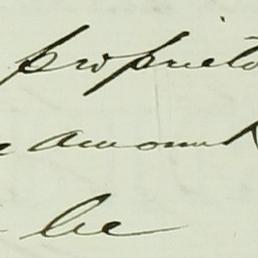 proprieto
amount
be